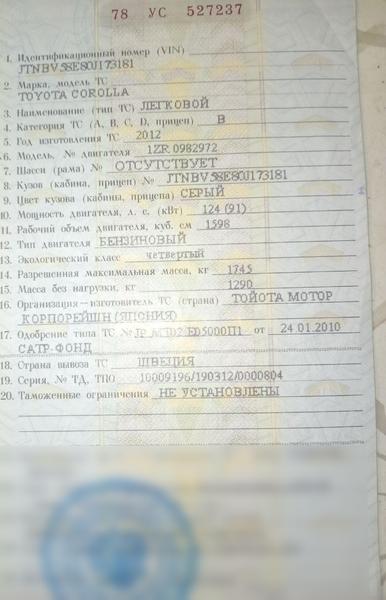 78 УС 527237
1. Идентификационный номер (VIN)
JTNBV58E80J173181
2. Марка, модель ТС
TOYOTA COROLLA
3. Наименование (тип ТС) ЛЕГКОВОЙ
4. Категория ТС (А, В, С, D, прицеп) В
5. Год изготовления ТС 2012
6. Модель, № двигателя 1ZR 0982972
7. Шасси (рама) № ОТСУТСТВУЕТ
8. Кузов (кабина, прицеп) № JTNBV58E80J173181
9. Цвет кузова (кабины, прицепа) СЕРЫЙ
10. Мощность двигателя, л. с. (кВт) 124 (91)
11. Рабочий объем двигателя, куб. см 1598
12. Тип двигателя БЕНЗИНОВЫЙ
13. Экологический класс четвертый
14. Разрешенная максимальная масса, кг 1745
15. Масса без нагрузки, кг 1290
16. Организация—изготовитель ТС (страна) ТОЙОТА МОТОР
КОРПОРЕЙШН (ЯПОНИЯ)
17. Одобрение типа ТС № от 24.01.2010
САТР-ФОНД
18. Страна вывоза ТС ШВЕЦИЯ
19. Серия, № ТД, ТПО 10009196/190312/0000804
20. Таможенные ограничения НЕ УСТАНОВЛЕНЫ